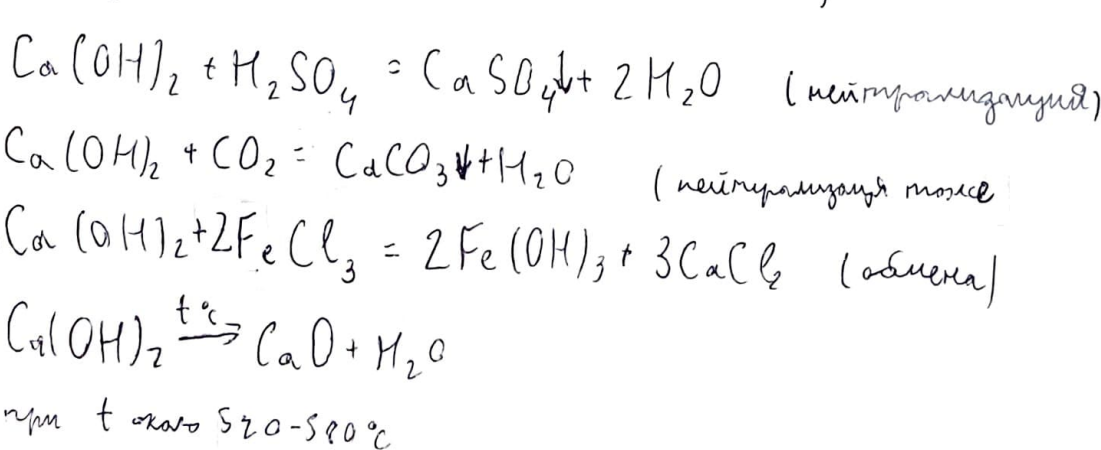 Ca(OH)₂ + H₂SO₄ = CaSO₄↓ + 2H₂O (нейтрализация)
Ca(OH)₂ + CO₂ = CaCO₃↓ + H₂O (нейтрализация тоже
Ca(OH)₂ + 2FeCl₃ = 2Fe(OH)₃ + 3CaCl₂ (обмена)
Ca(OH)₂ t°C→ CaO + H₂O
при t около 520-580°C